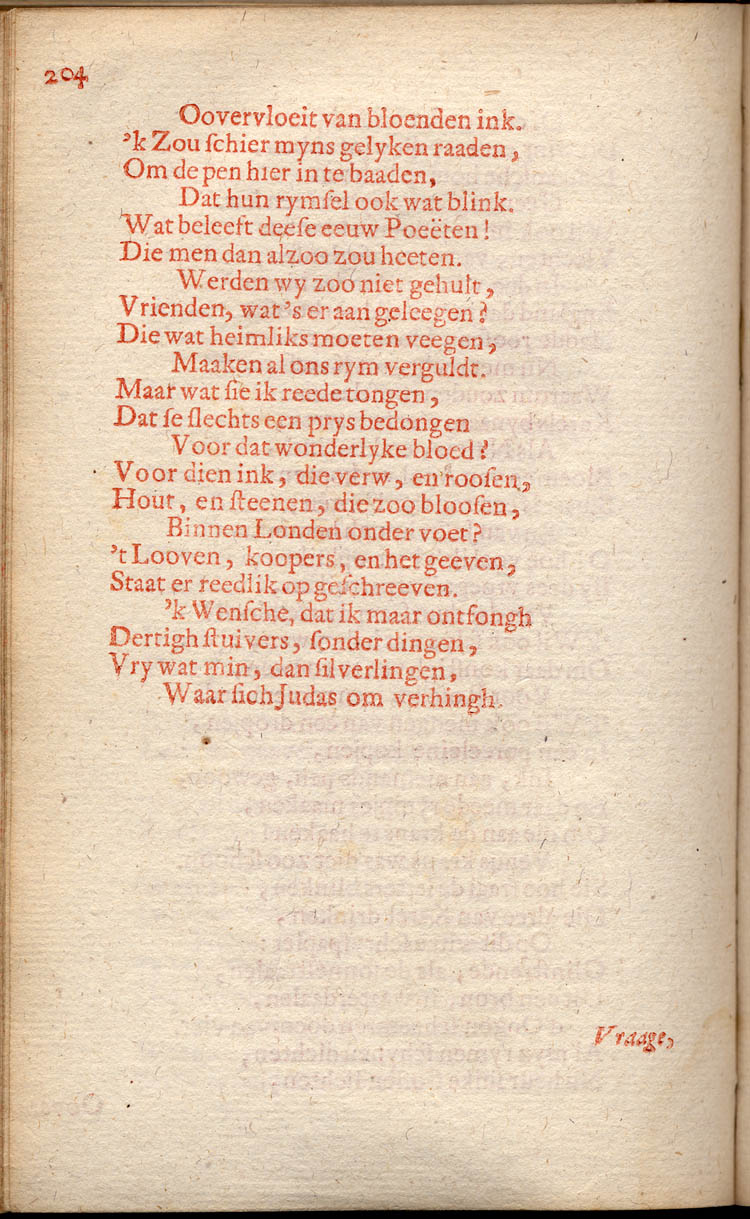 204
Oovervloeit van bloenden ink.
’k Zou ſchier myns gelyken raaden,
Om de pen hier in te baaden,
Dat hun rymſel ook wat blink.
Wat beleeft deeſe eeuw Poeëten!
Die men dan alzoo zou heeten.
Werden wy zoo niet gehult,
Vrienden, wat ’s er aan geleegen?
Die wat heimliks moeten veegen,
Maaken al ons rym verguldt.
Maar wat ſie ik reede tongen,
Dat ſe ſlechts een prys bedongen
Voor dat wonderlyke bloed?
Voor dien ink, die verw, en rooſen,
Hout, en ſteenen, die zoo blooſen,
Binnen Londen onder voet?
’t Looven, koopers, en het geeven,
Staat er reedlik op geſchreeven.
’k Wenſche, dat ik maar ontfongh
Dertigh ſtuivers, ſonder dingen,
Vry wat min, dan ſilverlingen,
Waar ſich Judas om verhingh.
Vraage,